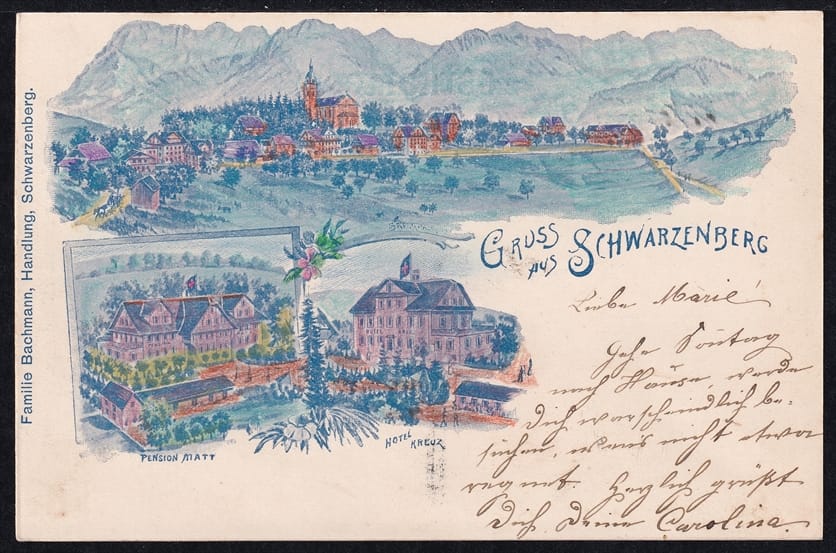 Familie Bachmann, Handlung, Schwarzenberg.
GRUSS
AUS SCHWARZENBERG
HOTEL
PENSION MATT
HOTEL
KREUZ
Liebe Marie!
Gehe Sontag
nach Hause, werde
Dich warscheindlich be-
suchen, wens nicht etwa
regnet. Herzlich grüßt
Dich Deine Carolina.